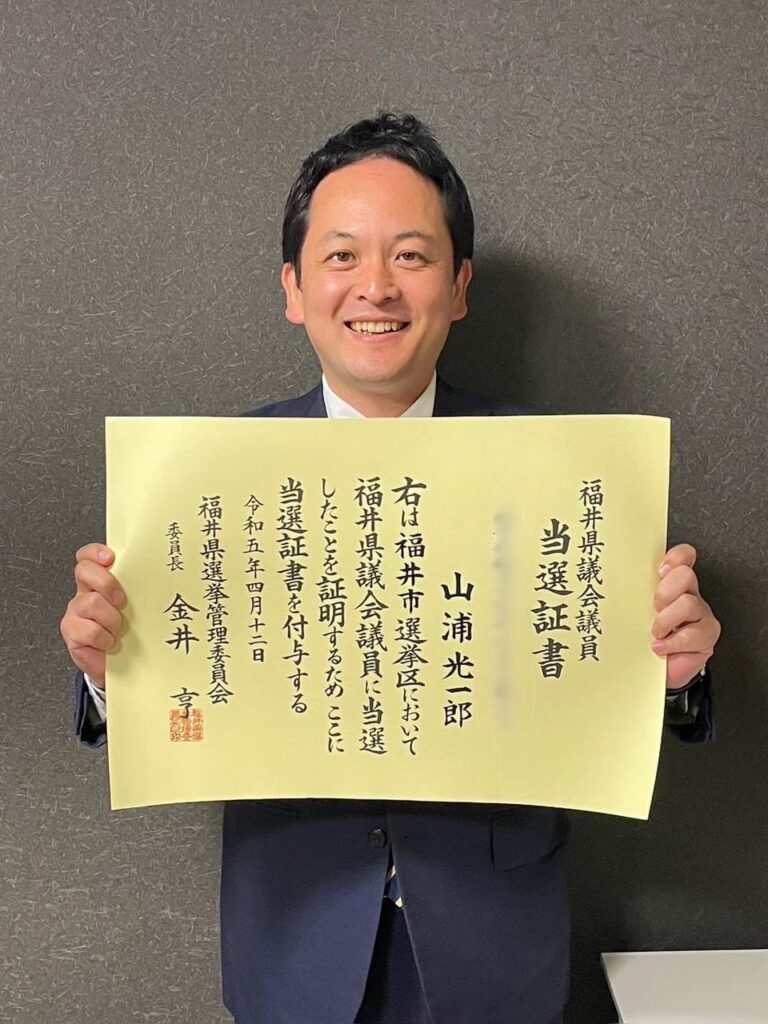 福井県議会議員
当選証書
山浦光一郎
右は福井市選挙区において
福井県議会議員に当選
したことを証明するため ここに
当選証書を付与する
令和五年四月十二日
福井県選挙管理委員会
委員長 金井 亨